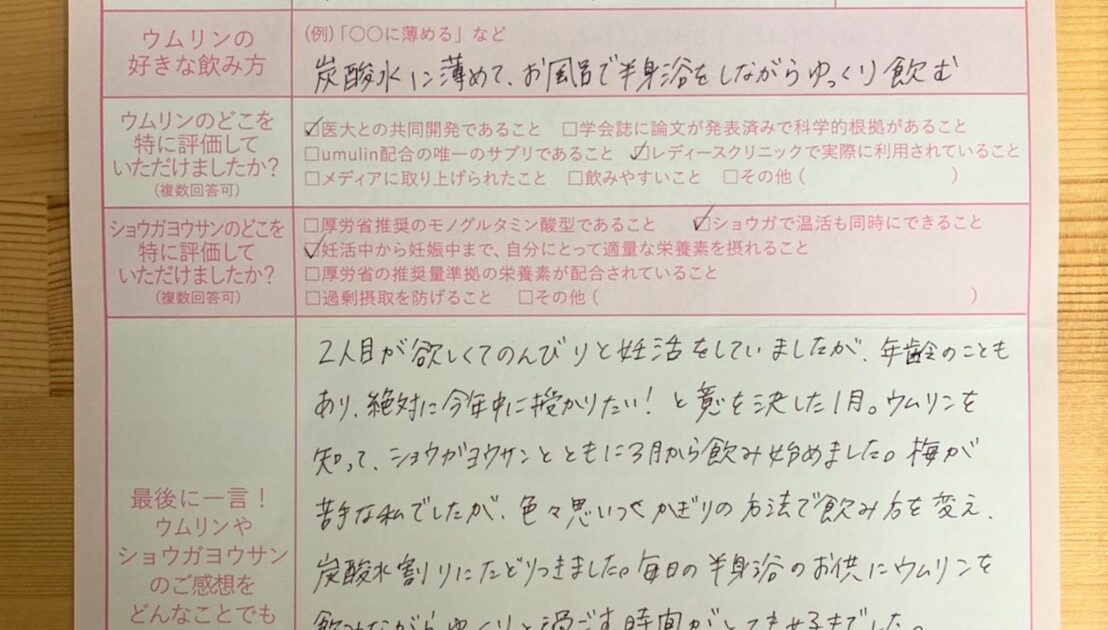 ウムリンの
好きな飲み方
(例)「〇〇に薄める」など
炭酸水に薄めて、お風呂で半身浴をしながらゆっくり飲む
ウムリンのどこを
特に評価して
いただけましたか?
(複数回答可)
☑医大との共同開発であること □学会誌に論文が発表済みで科学的根拠があること
□umulin配合の唯一のサプリであること ☑レディースクリニックで実際に利用されていること
□メディアに取り上げられたこと □飲みやすいこと □その他( )
ショウガヨウサンのどこを
特に評価して
いただけましたか?
(複数回答可)
□厚労省推奨のモノグルタミン酸型であること ☑ショウガで温活も同時にできること
☑妊活中から妊娠中まで、自分にとって適量な栄養素を摂れること
□厚労省の推奨量準拠の栄養素が配合されていること
□過剰摂取を防げること □その他( )
最後に一言!
ウムリンや
ショウガヨウサン
のご感想を
どんなことでも
2人目が欲しくてのんびりと妊活をしていましたが、年齢のことも
あり、絶対に今年中に授かりたい!と意を決した1月。ウムリンを
知って、ショウガヨウサンとともに3月から飲み始めました。梅が
苦手な私でしたが、色々思いつくかぎりの方法で飲み方を変え、
炭酸水割りにたどりつきました。毎日の半身浴のお供にウムリンを
飲みながらゆっくりと過ごす時間がとても好きでした。